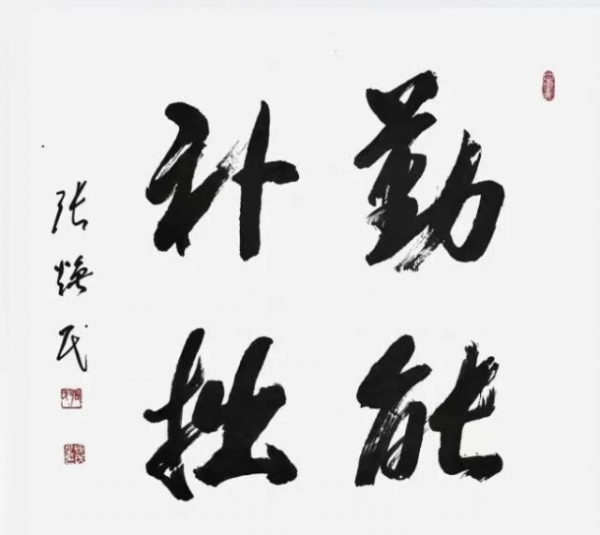 勤能
补拙
张焕民